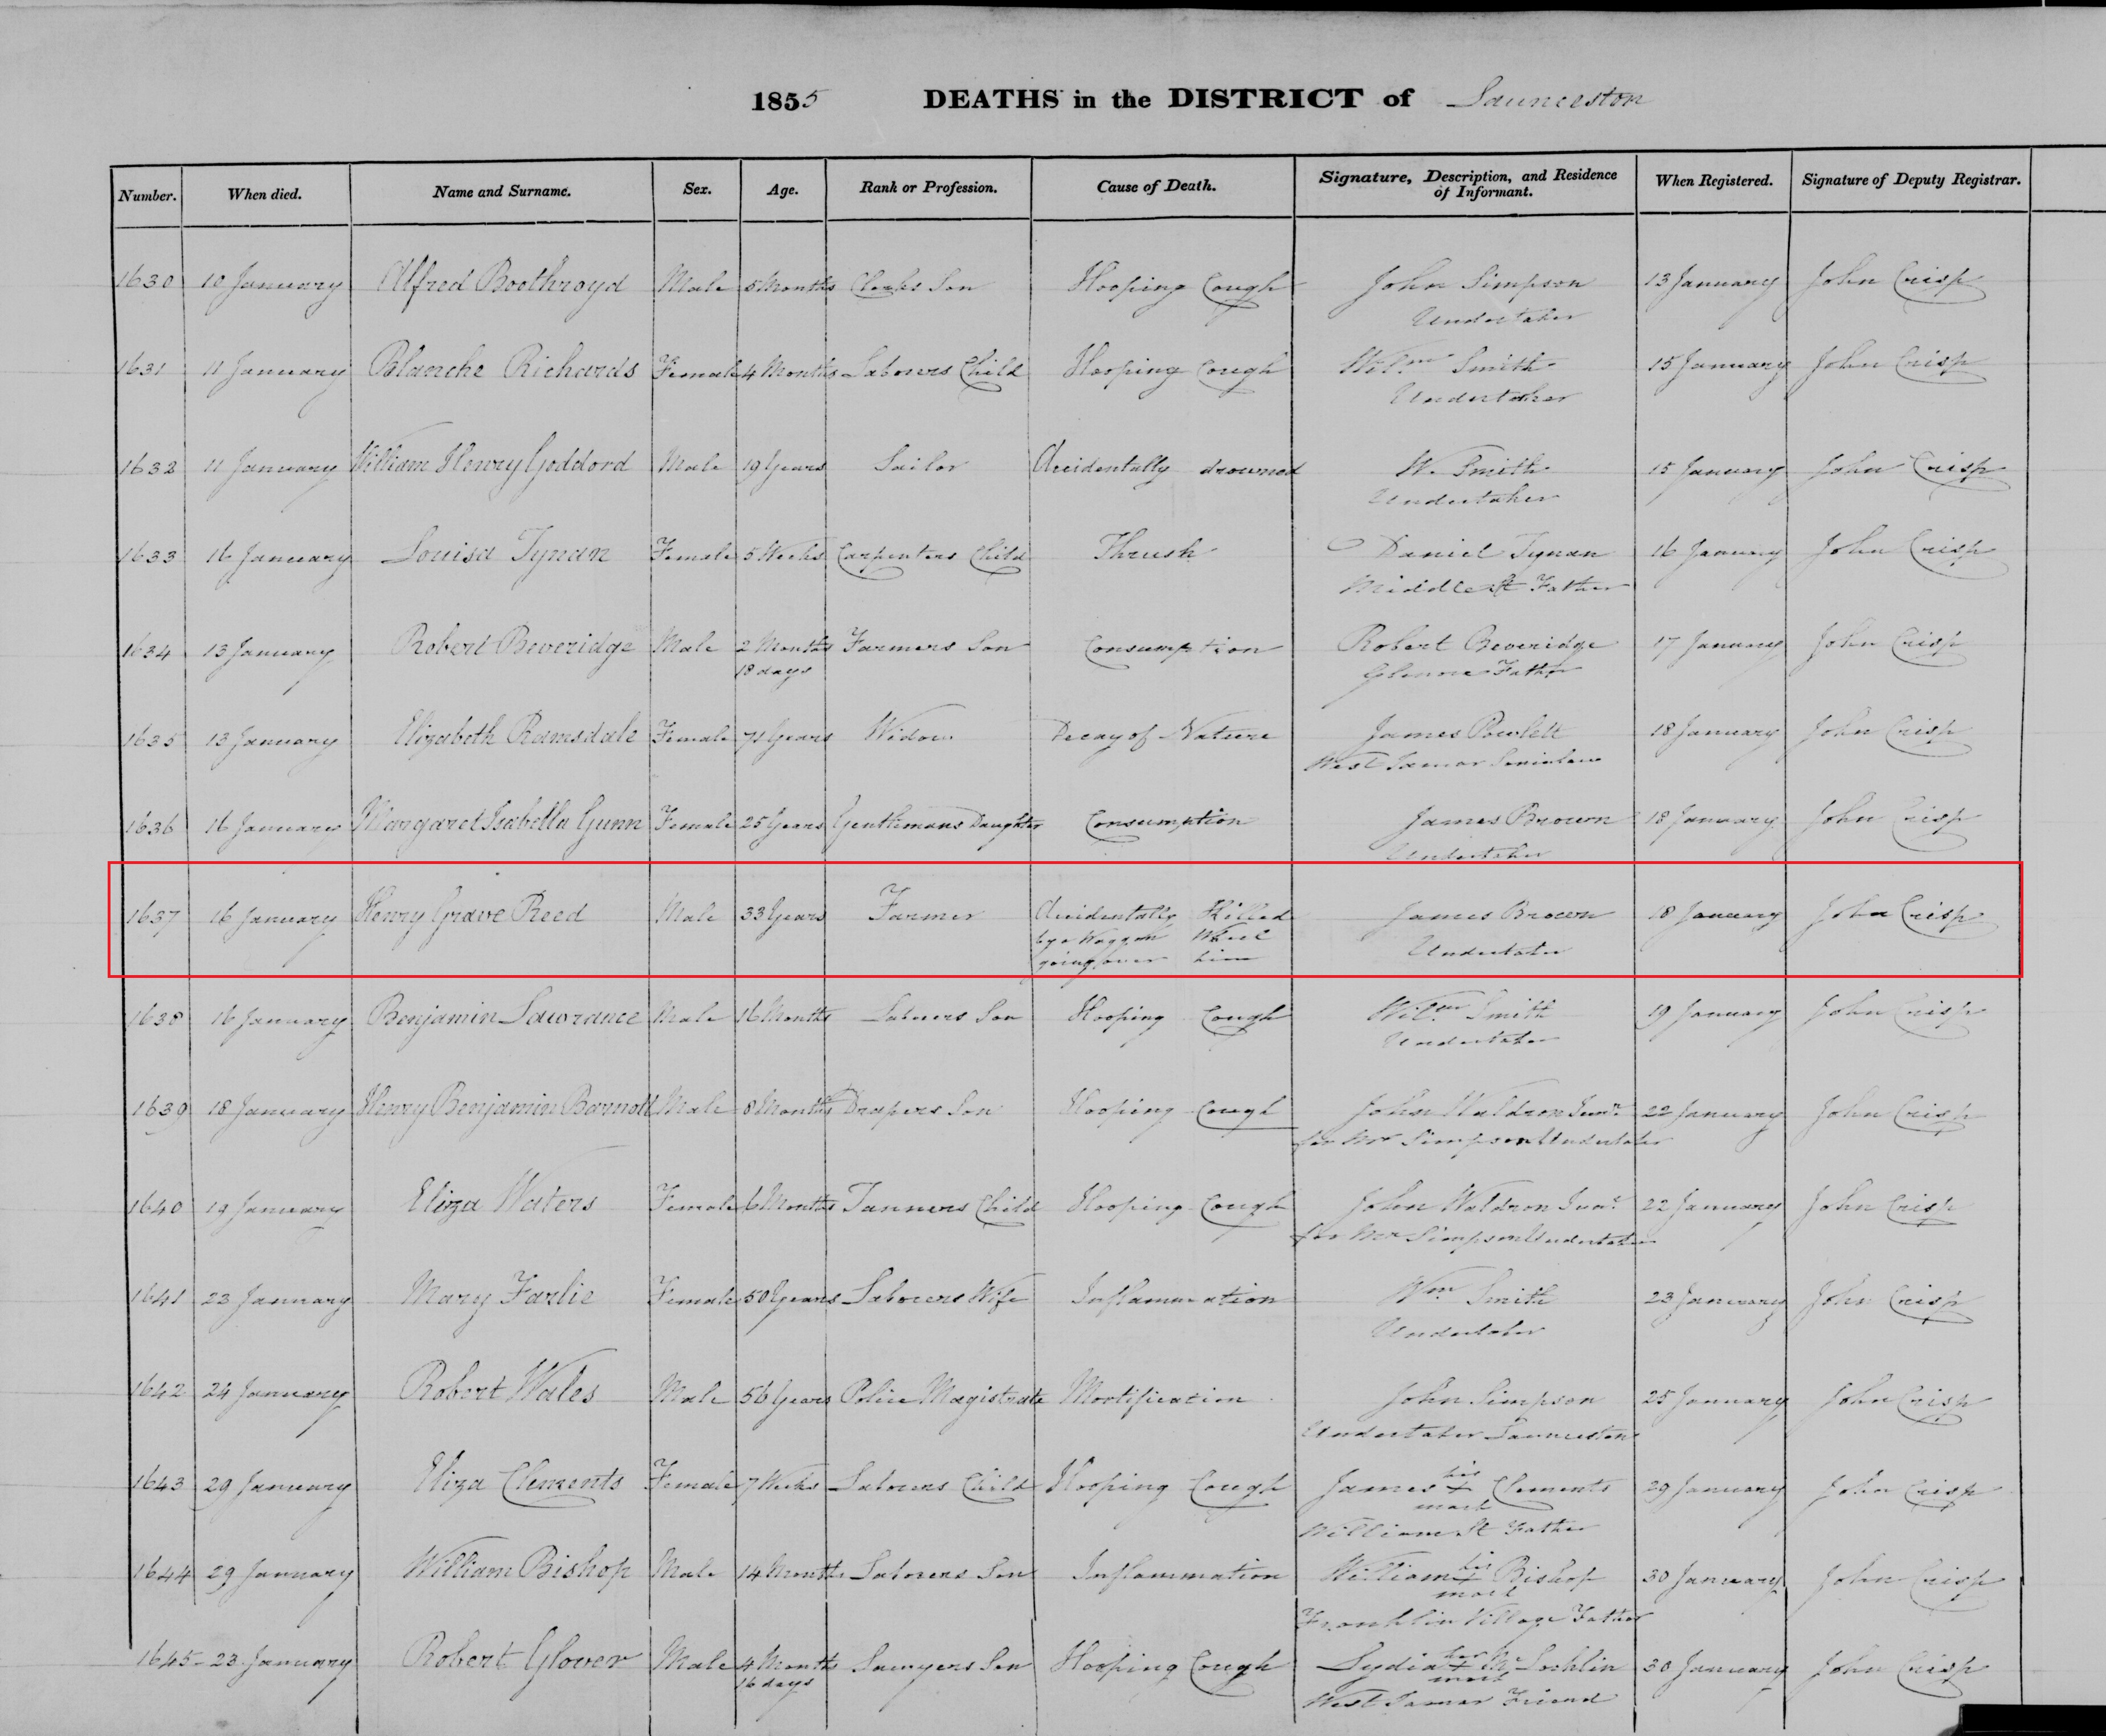 1855 DEATHS in the DISTRICT of Launceston
Number. When died. Name and Surname. Sex. Age. Rank or Profession. Cause of Death. Signature, Description, and Residence of Informant. When Registered. Signature of Deputy Registrar.
1630 10 January Alfred Boothroyd Male 5 Months Clerks Son Hooping Cough John Simpson 13 January John Crisp
Undertaker
1631 11 January Blanche Richards Female 4 Months Laborers Child Hooping Cough Willm Smith 15 January John Crisp
Undertaker
1632 11 January William Henry Goddord Male 19 Years Sailor Accidentally drowned W. Smith 15 January John Crisp
Undertaker
1633 16 January Louisa Tynan Female 5 Weeks Carpenters Child Thrush Daniel Tynan 16 January John Crisp
Middle St Father
1634 13 January Robert Beveridge Male 2 Months Farmers Son Consumption Robert Beveridge 17 January John Crisp
18 days Glenore Father
1635 13 January Elizabeth Ramsdale Female 71 Years Widow Decay of Nature James Powlett 18 January John Crisp
West Tamar
1636 16 January Margaret Isabella Gunn Female 25 Years Gentlemans Daughter Consumption James Brown 18 January John Crisp
Undertaker
1637 16 January Henry Grave Reed Male 33 Years Farmer Accidentally Killed James Brown 18 January John Crisp
by a Waggon Wheel Undertaker
going over him
1638 16 January Benjamin Lawrance Male 16 Months Laborers Son Hooping Cough Willm Smith 19 January John Crisp
Undertaker
1639 18 January Henry Benjamin Barnott Male 8 Months Drapers Son Hooping Cough John Waldron Junr 22 January John Crisp
for Mr Simpson Undertaker
1640 19 January Eliza Waters Female 6 Months Tanners Child Hooping Cough John Waldron Junr 22 January John Crisp
for Mr Simpson Undertaker
1641 23 January Mary Farlie Female 50 Years Laborers Wife Inflammation Wm Smith 23 January John Crisp
Undertaker
1642 24 January Robert Wales Male 56 Years Police Magistrate Mortification John Simpson 25 January John Crisp
Undertaker Launceston
1643 29 January Eliza Clements Female 7 Weeks Laborers Child Hooping Cough James his + mark Clements 29 January John Crisp
William St Father
1644 29 January William Bishop Male 14 Months Laborers Son Inflammation William his + mark Bishop 30 January John Crisp
Franklin Village Father
1645 23 January Robert Glover Male 4 Months Sawyers Son Hooping Cough Lydia her + mark Mc Lochlin 30 January John Crisp
16 days West Tamar Friend